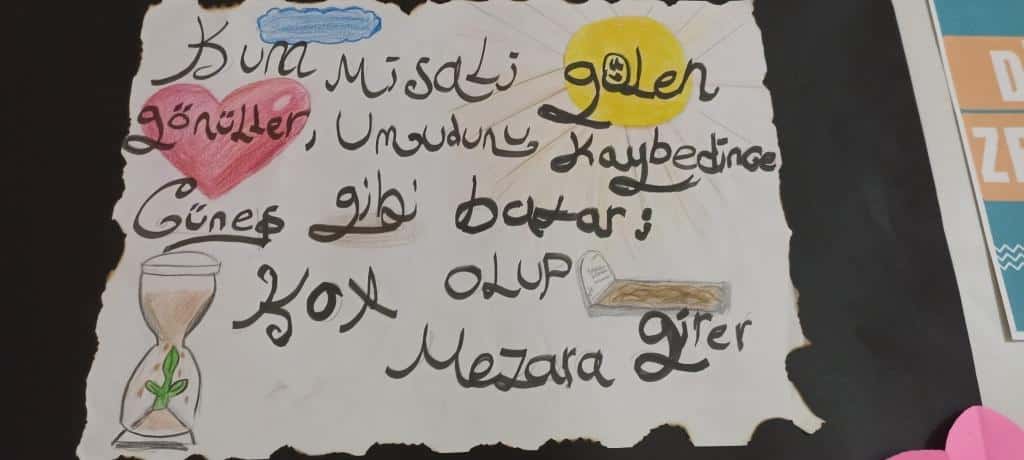 Kum Misali gülen
gönüller, Umudunu Kaybedince
Güneş gibi batar;
Yok OLUP
Mezara girer
D
ZE